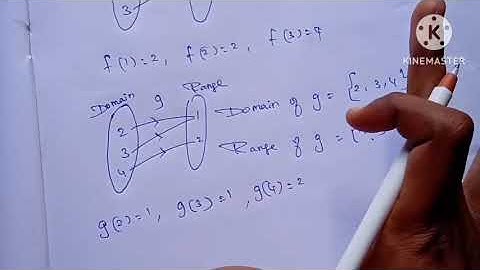 f(1)=2, f(2)=2, f(3)=4
KINEMASTER
Domain g Range
2 3 4
1 2
Domain of g = {2, 3, 4}
Range of g = {
g(2)=1, g(3)=1, g(4)=2